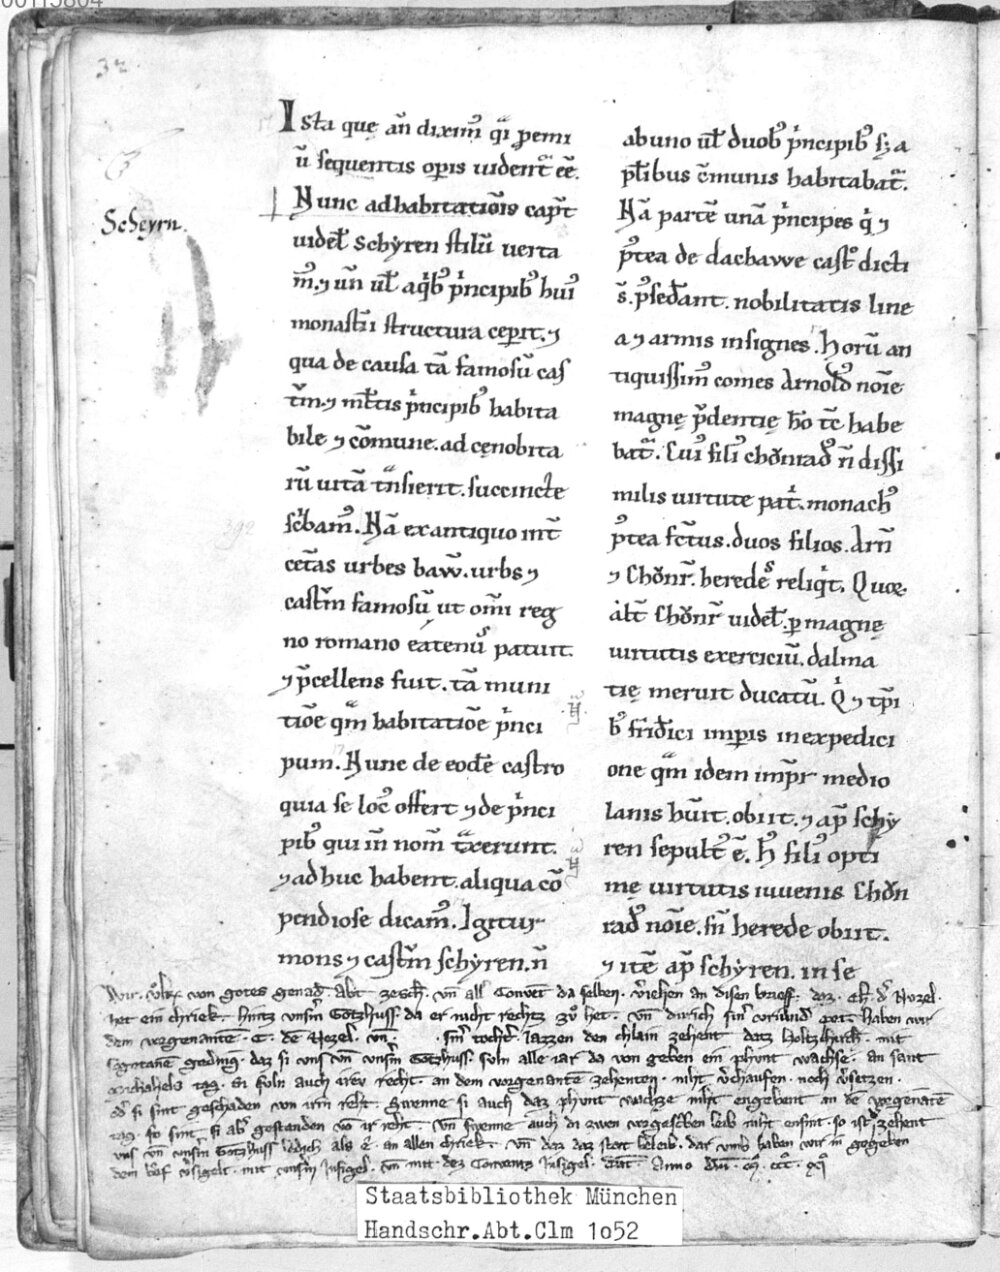 32
Scheyrn.
Ista quę añ diximꝰ q̃i p̱emi
ũ sequentis op̱is uident᷑ eē.
Nunc ad habitatiõis cap̃t
uidel̃ Schẏren stilũ uerta
mꝰ. ⁊ uñ ul̃ a qͥbꝰ pͥncipibꝰ huiꝰ
monast̃ii structura cep̱it. ⁊
qua de causa tã famosũ cas
t̃m. ⁊ ml̃tis pͥncipibꝰ habita
bile ⁊ cõmune. ad cęnobita
rũ uitã tͣnsierit. succincte
sc̾bamꝰ. Nã ex antiquo int̃
cet̃as urbes baw̃. urbs ⁊
cast̃m famosũ ut om̃i reg
no romano eatenꝰ patuit.
⁊ p̃cellens fuit. tã muni
tiõe qͣm habitatiõe pͥnci
pum. Nunc de eodẽ castro
quia se locꝰ offert ⁊ de pͥnci
pibꝰ qui iñ nom̃ tͣxerunt.
⁊ ad huc habent. aliqua cõ
pendiose dicamꝰ. Igitur
mons ⁊ cast̃m schẏren. ñ
ab uno ul̃ duobꝰ pͥncipibꝰ sꝫ a
pl̃ibus c̃munis habitabat᷑.
Nã partẽ unã pͥncipes qͥ ⁊
p̾tea de dachawe castꝰ dicti
s̃. p̾sedãnt. nobilitatis line
a ⁊ armis insignes. Horũ an
tiquissimꝰ comes Arnoldꝰ noĩe
magnę p̃dentię hõ tc̃ habe
bat᷑. Cuiꝰ filiꝰ chǒnradꝰ ñ dissi
milis uirtute pat̾. monachꝰ
p̾tea fc̃tus. duos filios. Arñ
⁊ Chǒnr̃. heredeˢ reliqͥt. Quoꝝ
alt̃ Chǒnr̃ uidel̃. p̱ magnę
uirtutis exerciciũ. dalma
tię meruit ducatũ. Qͥ ⁊ tp̃i
bꝰ frid̃ici imp̱is in expedici
one qͣm idem imp̃r medio
lanis hũit. obiit. ⁊ ap̃ schẏ
ren sepultꝰ ẽ. Hꝰ filiꝰ opti
mę uirtutis iuuenis Chǒn
radꝰ noĩe. sñ herede obiit.
⁊ itẽ ap̃ schẏren. in se
Wir. von gotes genad. Abt ze Sch. vñ all Convẽt da selben. v̾iehen an disen brieff. daz. Ek. dˢ Nozel.
het ein chriek. hintz unsm̃ Gotzhuss. da er nicht rechtz zů het. haben wir
dem vorgenantẽ. E. dẽ Nozel. vñ sinˢ tochtˢ. lazzen den chlain zehent datz Holtzchirch. mit
geding. daz si uns vñ unsm̃ Gotzhuss. soln alle iar da von geben ein phunt wachse. an sant
Michahels tag. si soln auch irev recht. an dem vorgenantẽ zehenten. niht v̾chaufen. noch v̾setzen.
si sint geschaiden von irm reht. Swenne si auch daz phunt wachse niht engebent an dẽ vorgenantẽ
tag. so sint si abˢ gestanden võ ir reht. vñ swenne auch di zwen vorgesc̃ben leib niht ensint. so ist dˢ zehent
uns vñ unsm̃ Gotzhuss ledich als ẽ. an allen chriek. vñ daz daz stęt beleib. dar vmb haben wir in gegeben
dem brief v̾sigelt. mit unsm̃ Insigel. vñ mit dez Convents Insigel. Dat̃. Anno Dñi.
Staatsbibliothek München
Handschr.Abt.Clm 1o52